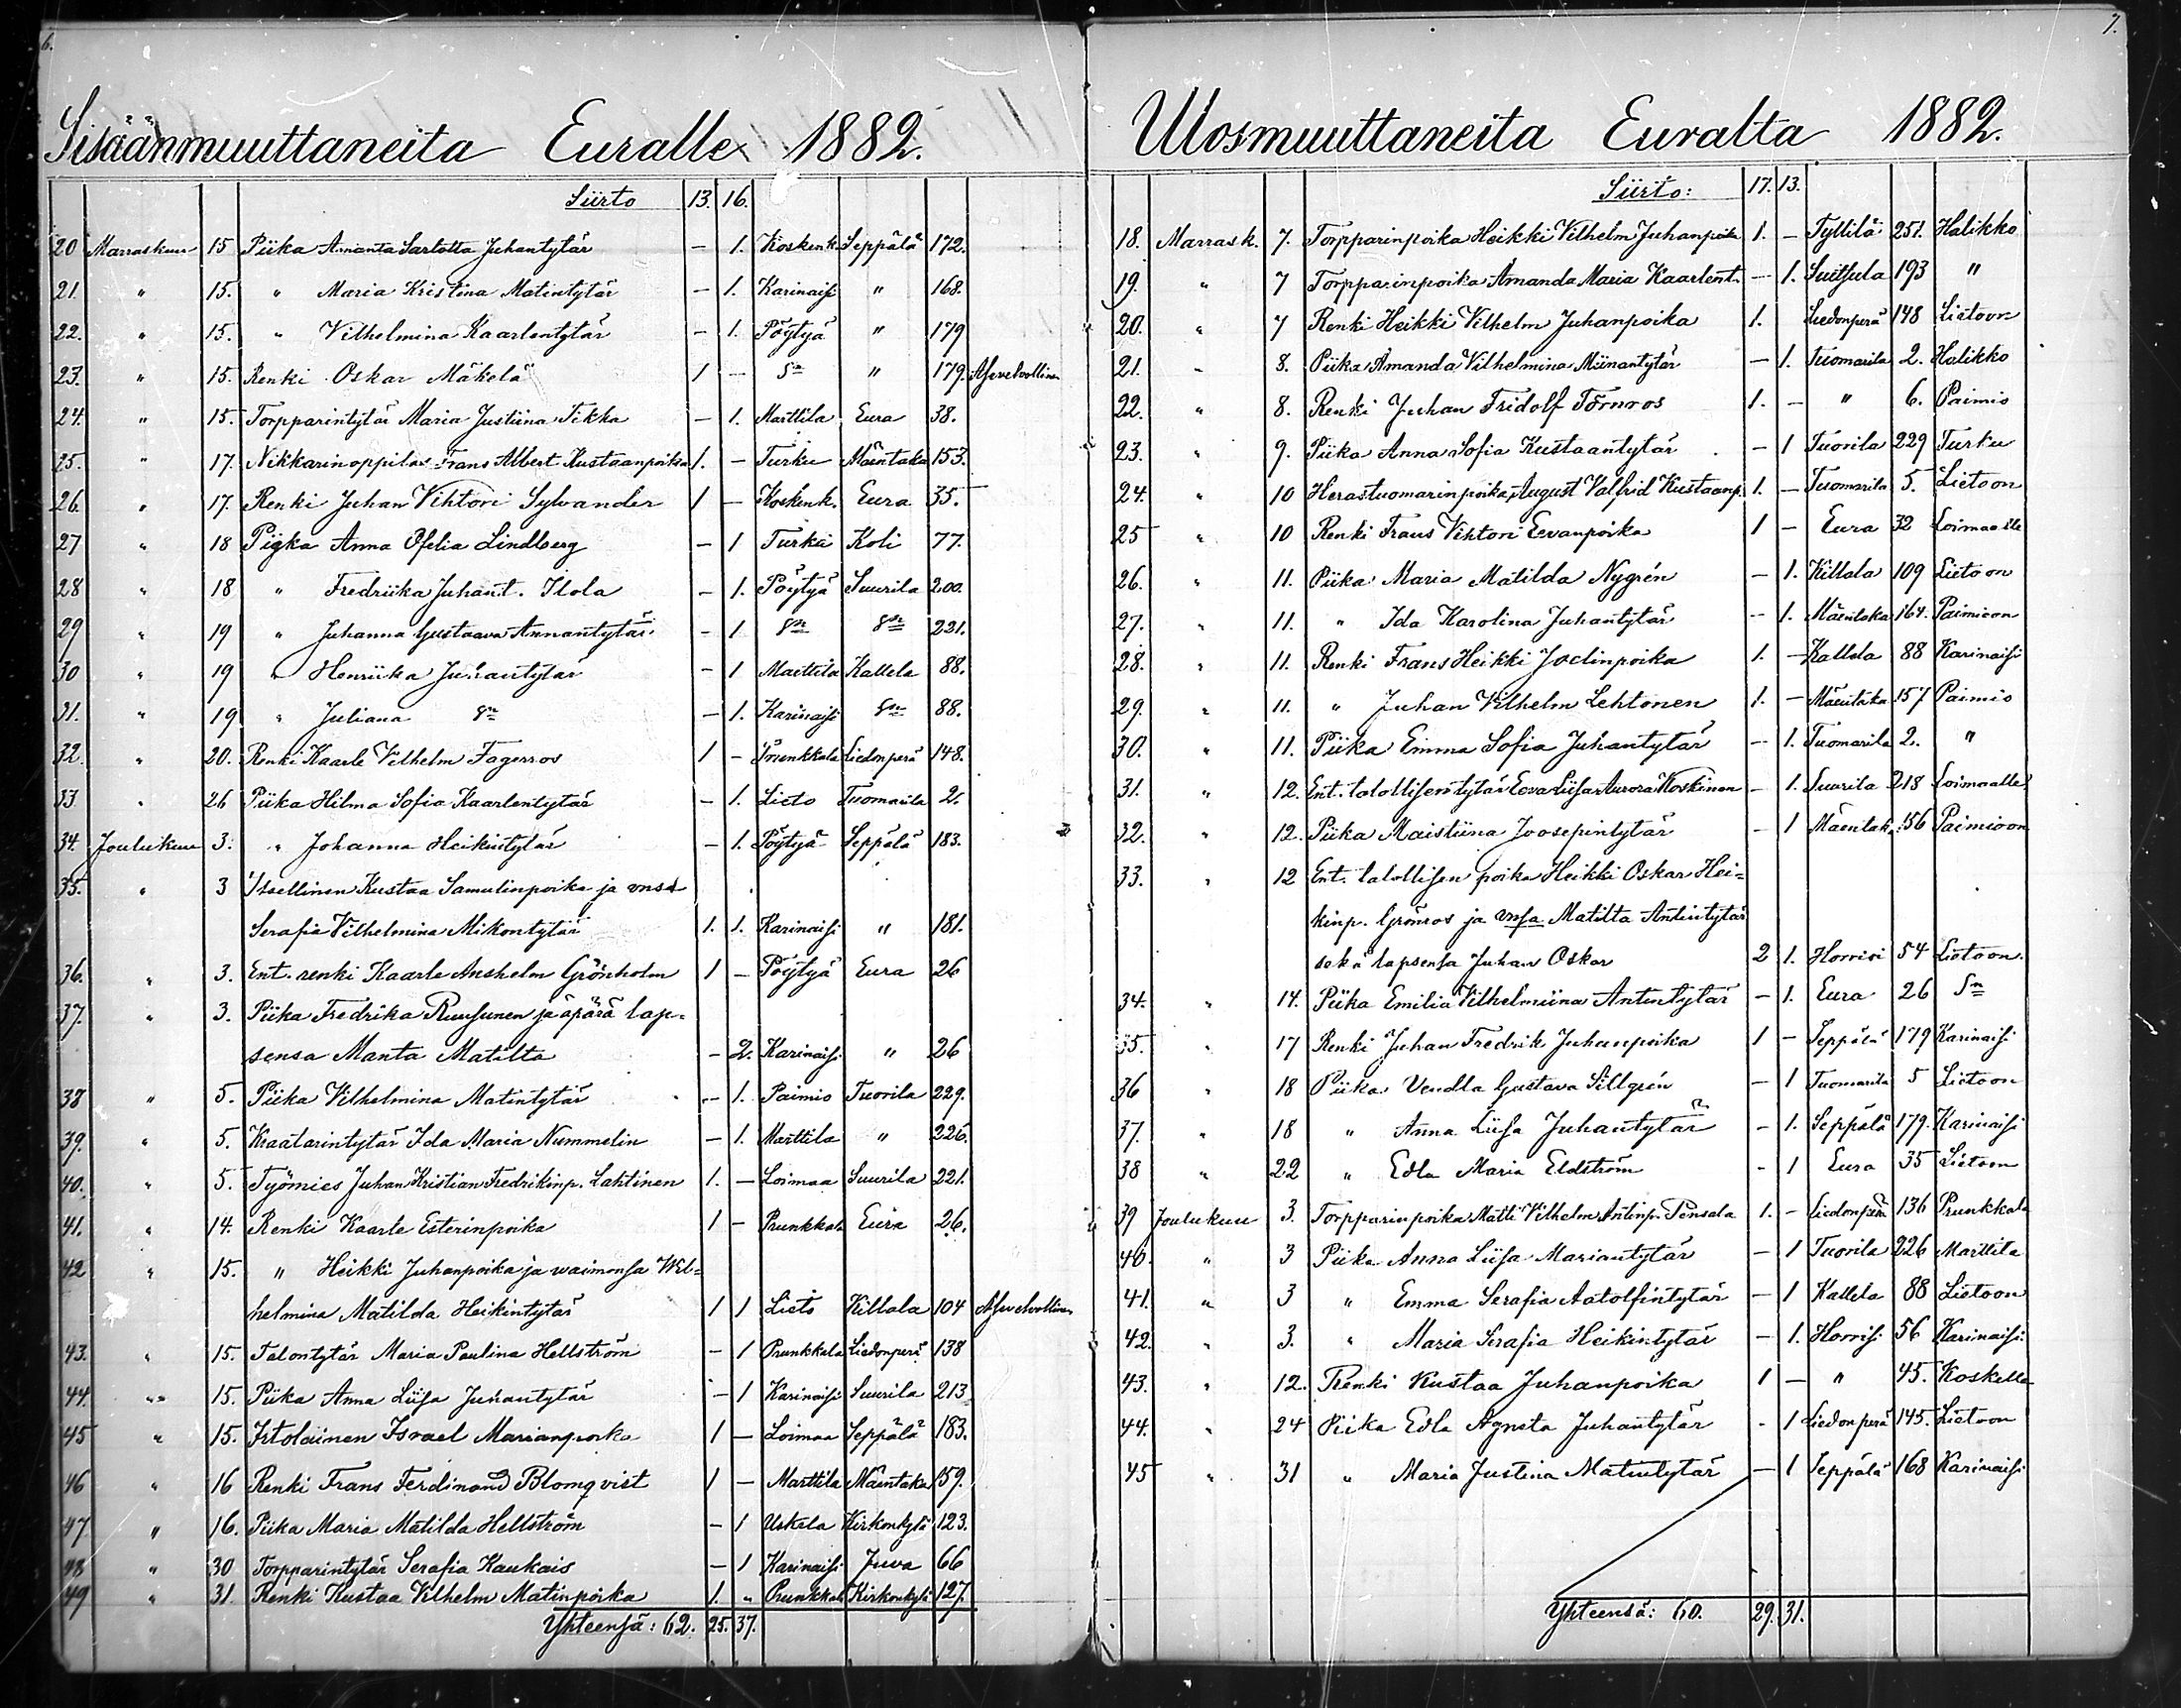 6.
Sisäänmuuttaneita Euralle 1882.
Siirto 13. 16.
20 Marraskuu 15 Piika Amanta Sarlotta Juhantytär – 1. Koskenk. Seppälä 172.
21. " 15. " Maria Kristina Matintytär – 1. Karinaisi " 168.
22. " 15. " Vilhelmina Kaarlentytär – 1. Pöytyä " 179
23. " 15. Renki Oskar Mäkelä 1 – Sn " 179. Asevelvollinen
24. " 15. Torpparintytär Maria Justiina Tikka – 1. Marttila Eura 38.
25. " 17. Nikkarinoppilas Frans Albert Kustaanpoika 1. – Turku Mäentaka 153.
26. " 17. Renki Juhan Vihtori Sylvander 1 – Koskenk. Eura 35.
27 " 18 Pigka Anna Ofelia Lindberg – 1 Turku Koli 77.
28 " 18 " Fredriika Juhant. Ilola – 1. Pöytyä Suurila 200.
29 " 19 " Juhanna Gustaava Annantytär – 1 Sn Sn 221.
30 " 19 " Henriika Juhantytär – 1 Marttila Kallela 88.
31. " 19 " Juliana Sn – 1. Karinaisi Sn 88.
32. " 20. Renki Kaarle Vilhelm Fagerros 1 – Prunkkala Liedonperä 148.
33. " 26 Piika Hilma Sofia Kaarlentytär – 1. Lieto Tuomarila 2.
34. Joulukuu 3. " Johanna Heikintytär – 1. Pöytyä Seppälä 183.
35. " 3 Itsellinen Kustaa Samulinpoika ja vnsa
Serafia Vilhelmina Mikontytär 1. 1. Karinaisi " 181.
36. " 3. Ent. renki Kaarle Anshelm Grönholm 1 – Pöytyä Eura 26
37. " 3. Piika Fredrika Ruusunen ja äpärä lap=
sensa Manta Matilta – 2. Karinaisi " 26
38 " 5. Piika Vilhelmina Matintytär – 1. Paimio Tuorila 229.
39. " 5. Kraatarintytär Ida Maria Nummelin – 1. Marttila " 226.
40. " 5. Työmies Juhan Kristian Fredrikinp. Lahtinen 1. – Loimaa Suurila 221.
41. " 14. Renki Kaarle Esterinpoika 1 – Prunkkala Eura 26.
42 " 15. " Heikki Juhanpoika ja waimonsa Wil=
helmina Matilda Heikintytär 1 1 Lieto Killala 104 Asevelvollinen
43. " 15. Talontytär Maria Paulina Hellström – 1 Prunkkala Liedonperä 138
44. " 15. Piika Anna Liisa Juhantytär – 1 Karinaisi Suurila 213
45 " 15. Irtolainen Israel Marianpoika 1 – Loimaa Seppälä 183.
46 " 16 Renki Frans Ferdinand Blomqvist 1 – Marttila Mäentaka 159.
47. " 16. Piika Maria Matilda Hellström – 1 Uskela Kirkonkylä 123.
48 " 30 Torpparintytär Serafia Kaukais – 1 Karinaisi Juva 66
49 " 31 Renki Kustaa Vilhelm Matinpoika 1. " Prunkkala Kirkonkylä 127.
Yhteensä: 62. 25. 37.
7.
Ulosmuuttaneita Euralta 1882.
Siirto: 17. 13.
18. Marrask. 7. Torpparinpoika Heikki Vilhelm Juhanpoika 1. – Tyllilä 251. Halikko
19. " 7 Torpparinpoika Amanda Maria Kaarlent. – 1. Suitsula 193 "
20. " 7 Renki Heikki Vilhelm Juhanpoika 1. Liedonperä 148 Lietoon
21. " 8. Piika Amanda Vilhelmina Miinantytär – 1. Tuomarila 2. Halikko
22. " 8. Renki Juhan Fridolf Törnroos 1. – " 6. Paimio
23. " 9. Piika Anna Sofia Kustaantytär – 1 Tuorila 229 Turku
24. " 10 Herastuomarinpoika August Valfrid Kustaanp. 1. – Tuomarila 5. Lietoon
25 " 10 Renki Frans Vihtori Eevanpoika 1 – Eura 32 Loimaalle
26. " 11. Piika Maria Matilda Nygrén – 1. Killala 109 Lietoon
27. " 11. " Ida Karolina Juhantytär – 1. Mäentaka 164. Paimioon
28. " 11. Renki Frans Heikki Joelinpoika 1. – Kallela 88 Karinaisi
29. " 11. " Juhan Vilhelm Lehtonen 1. – Mäentaka 157 Paimio
30. " 11. Piika Emma Sofia Juhantytär – 1. Tuomarila 2. "
31. " 12. Ent. talollisentytär Eeva Liisa Aurora Koskinen – 1. Suurila 218 Loimaalle
32. " 12. Piika Maistiina Joosepintytär – 1 Mäentak. 156 Paimioon
33. " 12 Ent. talollisen poika Heikki Oskar Hei=
kinp. Grönros ja vnsa Matilta Antintytär
sekä lapsensa Juhan Oskar 2 1. Horrisi 54 Lietoon.
34. " 14. Piika Emilia Vilhelmiina Antintytär – 1. Eura 26 Sn
35. " 17 Renki Juhan Fredrik Juhanpoika 1 – Seppälä 179 Karinaisi
36 " 18 Piika Vendla Gustava Sillgrén – 1 Tuomarila 5 Lietoon
37. " 18 " Anna Liisa Juhantytär – 1. Seppälä 179. Karinaisi
38 " 22 " Edla Maria Eldström - 1 Eura 35 Lietoon
39 Joulukuu 3. Torpparinpoika Matti Vilhelm Antinp. Pensala 1. – Liedonperä 136 Prunkkala
40. " 3 Piika Anna Liisa Mariantytär – 1 Tuorila 226 Marttila
41. " 3 " Emma Serafia Aatolfintytär – 1 Kallela 88 Lietoon
42. " 3. " Maria Serafia Heikintytär – 1. Horrisi 56 Karinaisi
43. " 12. Renki Kustaa Juhanpoika 1 – " 45. Koskelle
44. " 24 Piika Edla Agneta Juhantytär - 1 Liedonperä 145. Lietoon
45 " 31 " Maria Justina Matintytär – 1 Seppälä 168 Karinaisi
Yhteensä: 60. 29. 31.